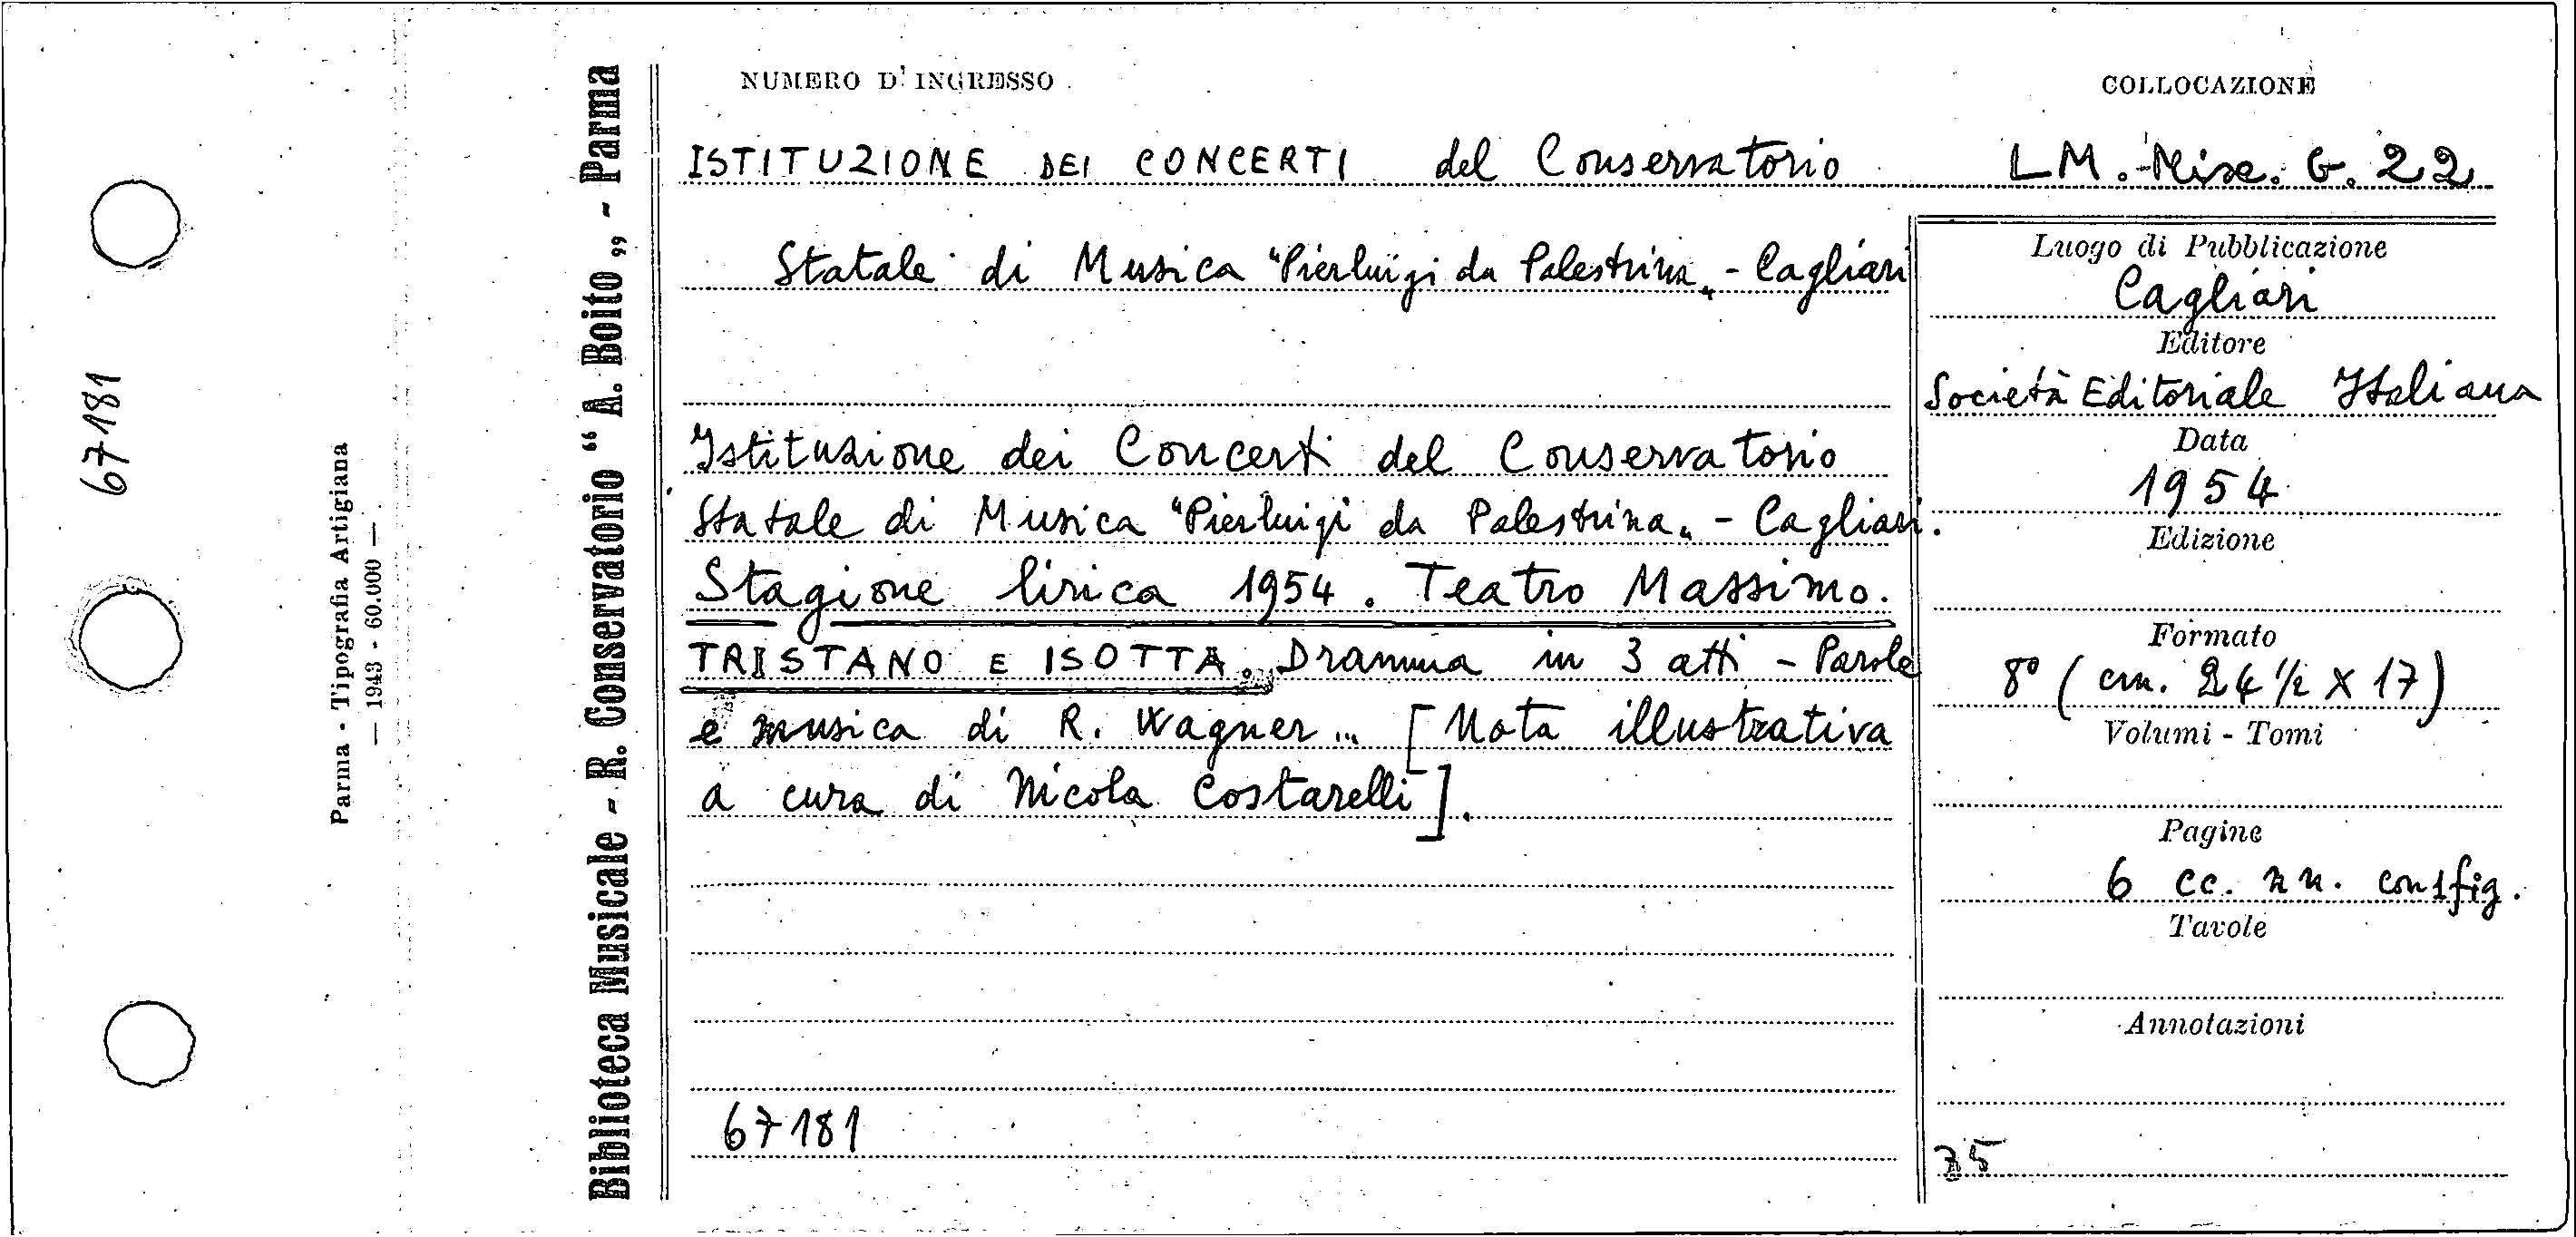 67181
Parma - Tipografia Artigiana
— 1943 - 60.000 —
Biblioteca Musicale - R. Conservatorio “ A. Boito „ - Parma
NUMERO D'INGRESSO
COLLOCAZIONE
ISTITUZIONE DEI CONCERTI del Conservatorio
LM. Misc. G. 22
Statale di Musica "Pierluigi da Palestrina„ - Cagliari
Istituzione dei Concerti del Conservatorio
Statale di Musica "Pierluigi da Palestrina„ - Cagliari.
Stagione lirica 1954. Teatro Massimo.
TRISTANO E ISOTTA. Dramma in 3 atti - Parole
e musica di R. Wagner... [Nota illustrativa
a cura di Nicola Costarelli].
67181
Luogo di Pubblicazione
Cagliari
Editore
Società Editoriale Italiana
Data
1954
Edizione
Formato
8° (cm. 24 ½ X 17)
Volumi - Tomi
Pagine
6 cc. nn. con 1 fig.
Tavole
Annotazioni